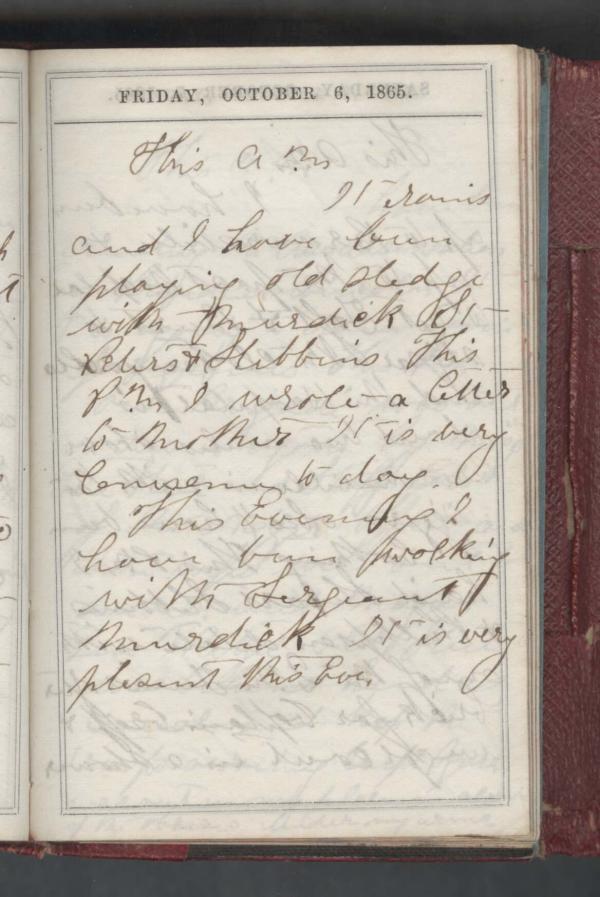 FRIDAY, OCTOBER 6, 1865.
This A M
It rains
and I have bun
playing old sledge
with Murdick St
Peters & Stibbins This
P M I wrote a letter
to Mother It is very
to day.
This Evening I
have bun walking
with Sergeant
Murdick It is very
plesent this Eve.